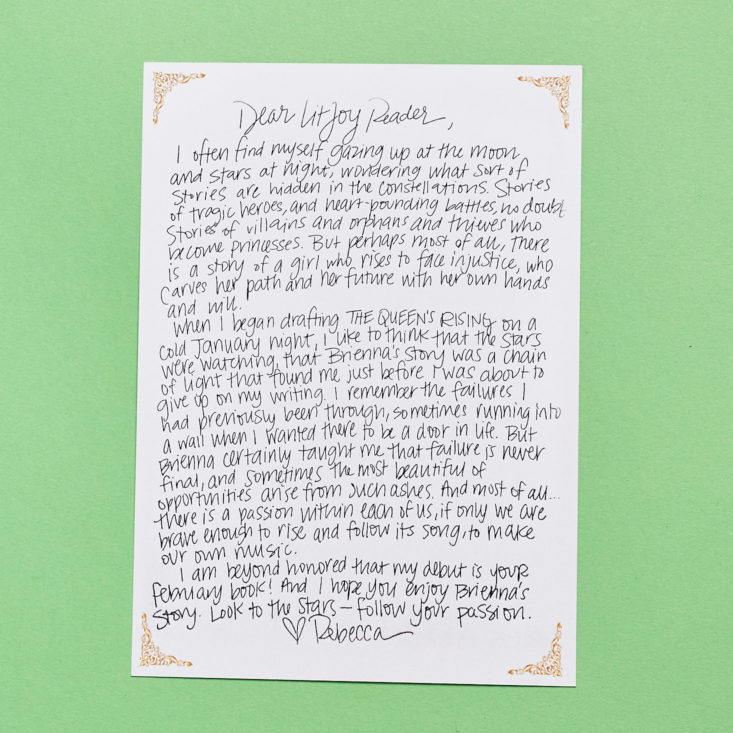 Dear LitJoy Reader,
I often find myself gazing up at the moon
and stars at night, wondering what sort of
stories are hidden in the constellations. Stories
of tragic heroes, and heart-pounding battles, no doubt.
Stories of villains and orphans and thieves who
become princesses. But perhaps most of all, there
is a story of a girl who rises to face injustice, who
carves her path and her future with her own hands
and will.
When I began drafting THE QUEEN'S RISING on a
cold January night, I like to think that the stars
were watching, that Brienna's story was a chain
of light that found me just before I was about to
give up on my writing. I remember the failures I
had previously been through, sometimes running into
a wall when I wanted there to be a door in life. But
Brienna certainly taught me that failure is never
final, and sometimes the most beautiful of
opportunities arise from such ashes. And most of all...
there is a passion within each of us, if only we are
brave enough to rise and follow its song, to make
our own music.
I am beyond honored that my debut is your
February book! And I hope you enjoy Brienna's
story. Look to the stars — follow your passion.
♡ Rebecca